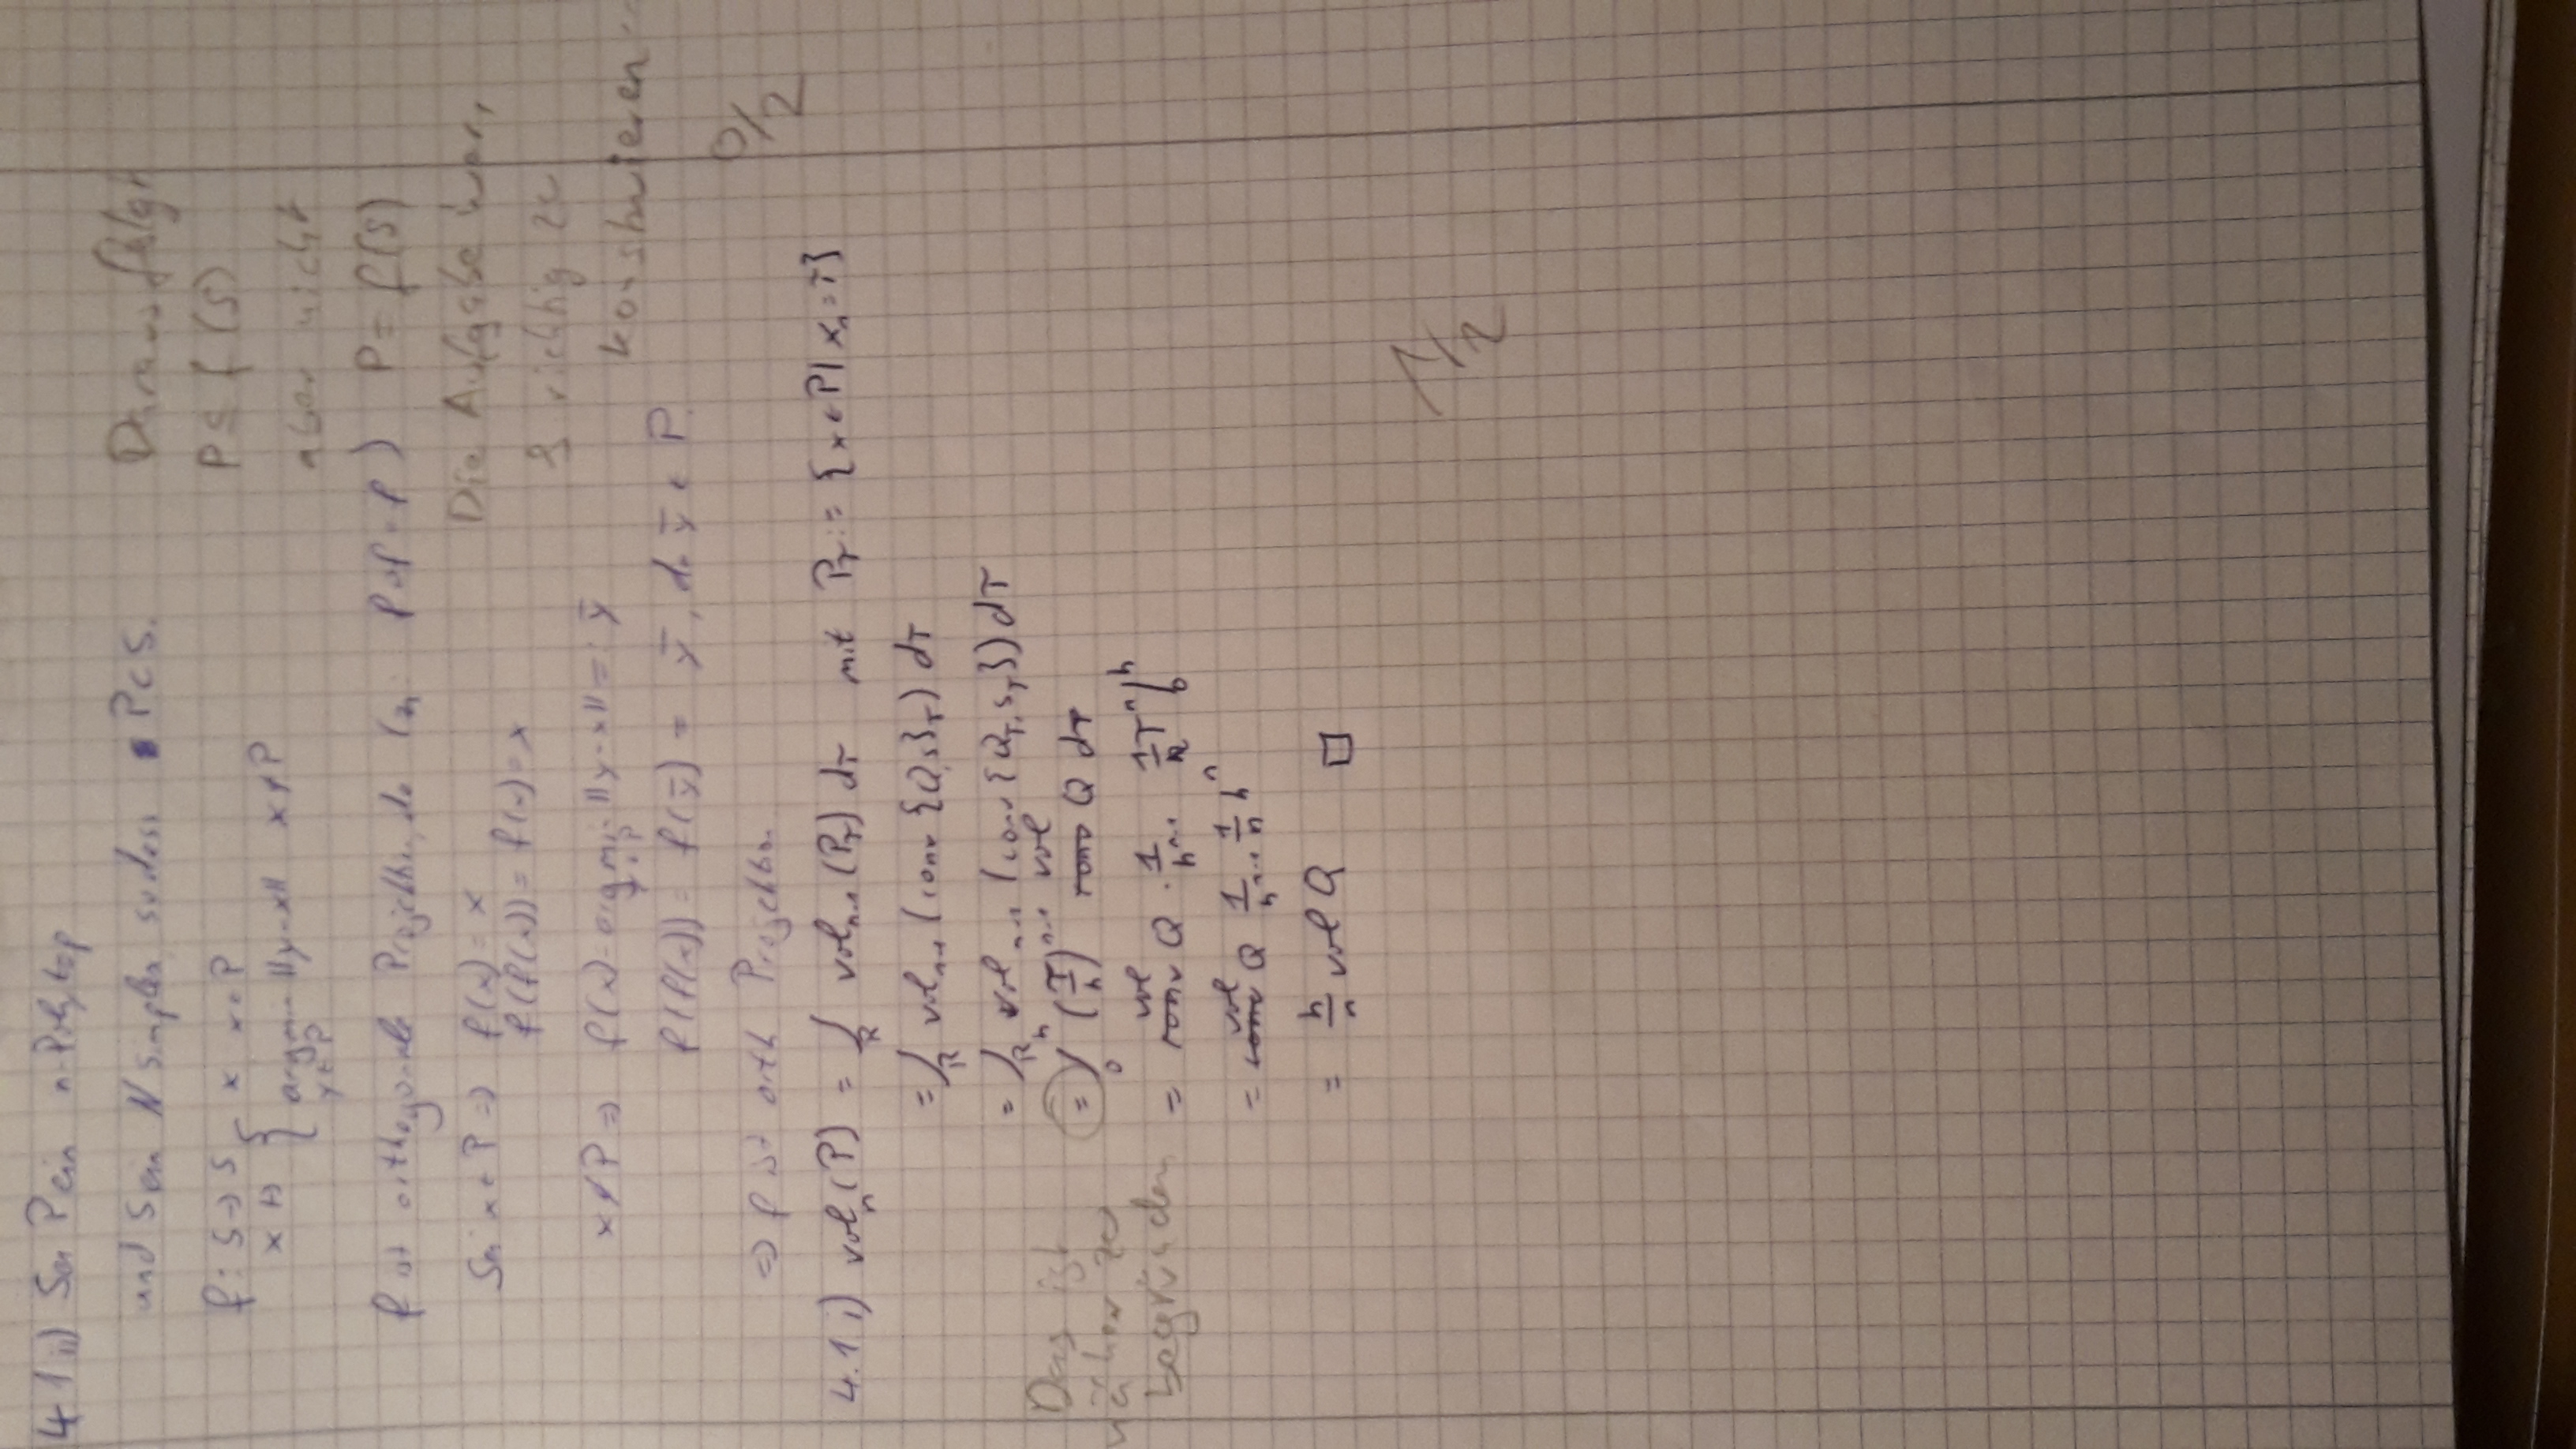 4.1 ii) Sei P ein n-Polytop
und S ein N simplex, sodass P ⊂ S.
f: S → S
x ↦ { x x ∈ P
argmin ||y-x|| x ∉ P
y ∈ P
f ist orthogonale Projektion, da (zz: f∘f = f)
Sei x ∈ P ⇒ f(x) = x
f(f(x)) = f(x) = x
x ∉ P ⇒ f(x) = argmin ||y-x|| =: ȳ
y ∈ P
f(f(x)) = f(ȳ) = ȳ, da ȳ ∈ P.
⇒ f ist orth Projektion
Daraus folgt
P ⊆ f(S)
aber nicht
P = f(S)
Die Aufgabe war,
S richtig zu
konstruieren
0/2
4.1 i) vol_n(P) = ∫_R vol_{n-1}(P_T) dT mit P_T := {x ∈ P | x_n = T}
= ∫_R vol_{n-1}(conv{Q,s}_T) dT
= ∫_R vol_{n-1}(conv{Q_T, s_T}) dT
= ∫_0^h (T/h)^{n-1} vol Q dT
Das ist
näher zu
begründen
= vol Q · 1/h^{n-1} 1/n T^n |_0^h
= vol Q 1/h^{n-1} 1/n h^n
= h/n vol Q □
1/2